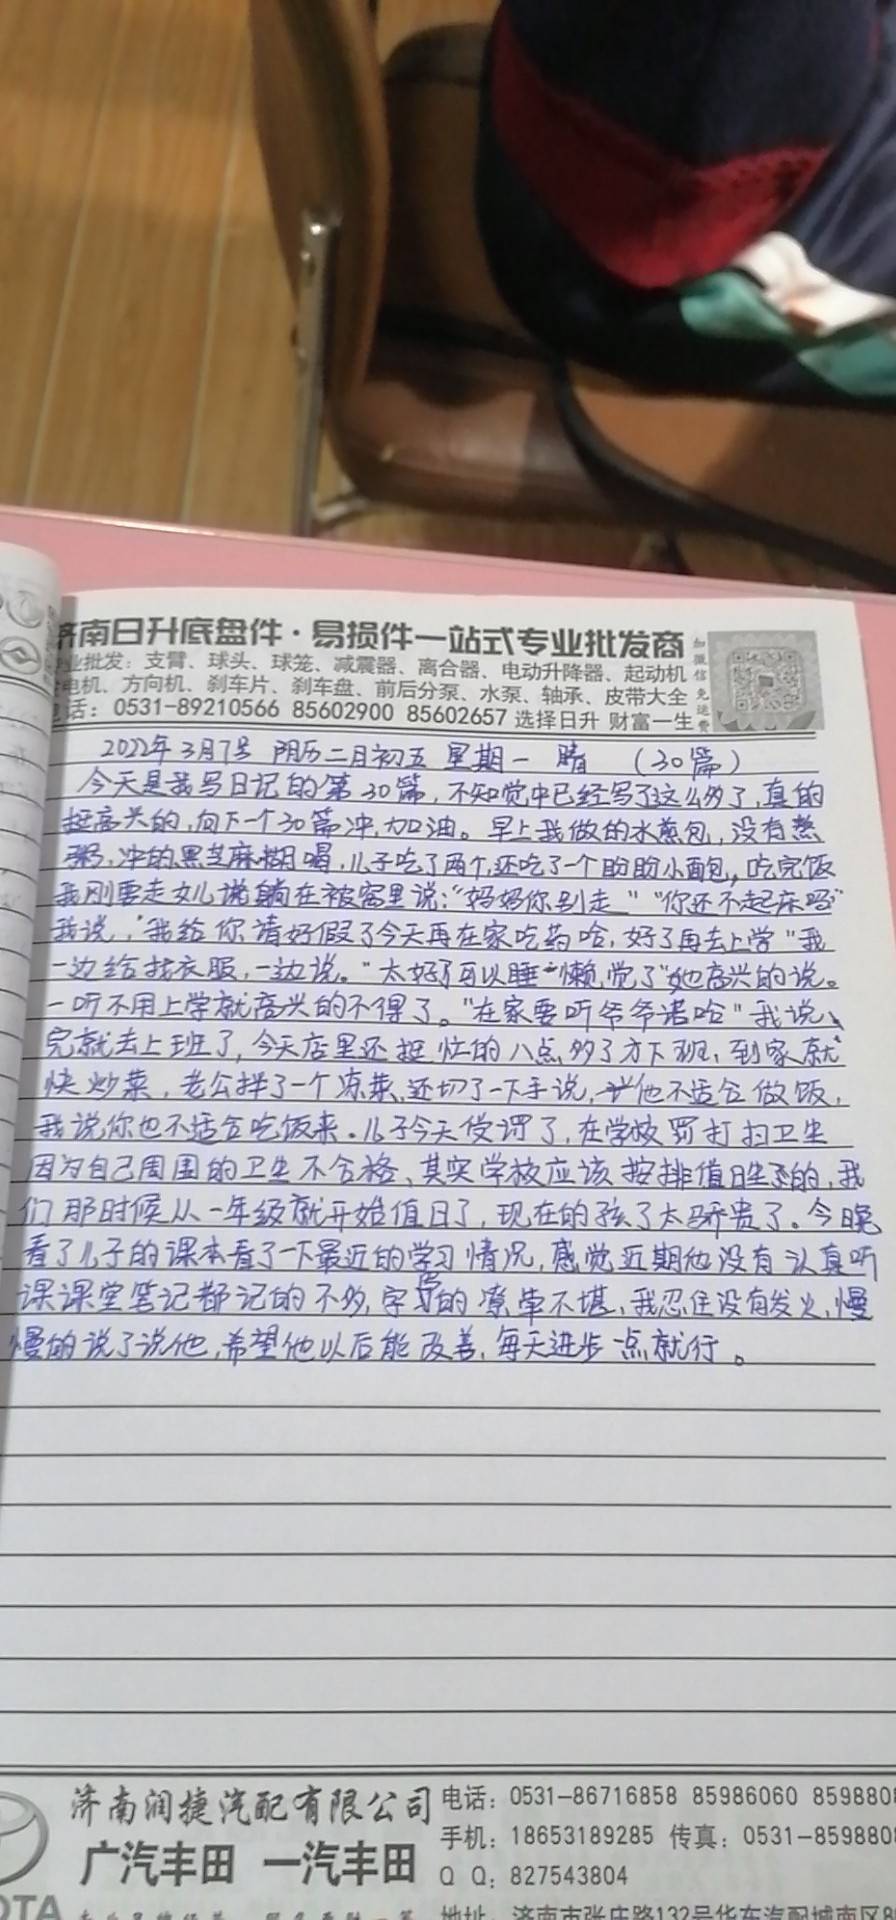 济南日升底盘件·易损件一站式专业批发商
业批发：支臂、球头、球笼、减震器、离合器、电动升降器、起动机
电机、方向机、刹车片、刹车盘、前后分泵、水泵、轴承、皮带大全
话：0531-89210566 85602900 85602657 选择日升 财富一生
加微信免运费
2022年3月7号 阴历二月初五 星期一 晴 （30篇）
今天是我写日记的第30篇，不知觉中已经写了这么多了，真的
挺高兴的，向下一个30篇冲，加油。早上我做的水煎包，没有熬
粥，冲的黑芝麻糊喝，儿子吃了两个，还吃了一个盼盼小面包，吃完饭
我刚要走女儿说躺在被窝里说：“妈妈你别走”“你还不起床吗”
我说，“我给你请好假了今天再在家吃药哈，好了再去上学”我
一边给找衣服，一边说。“太好了可以睡一懒觉了”她高兴的说。
一听不用上学就高兴的不得了。“在家要听爷爷话哈”我说、
完就去上班了，今天店里还挺忙的八点多了才下班，到家就
快炒菜，老公拌了一个凉菜，还切了一下手说，他不适合做饭，
我说你也不适合吃饭来。儿子今天受罚了，在学校罚打扫卫生
因为自己周围的卫生不合格、其实学校应该按排值日生的，我
们那时候从一年级就开始值日了，现在的孩了太骄贵了。今晚
看了儿子的课本看了一下最近的学习情况，感觉近期他没有认真听
课课堂笔记都记的不多，字写的潦草不堪，我忍住没有发火，慢
慢的说了说他，希望他以后能改善，每天进步一点就行。
济南润捷汽配有限公司
广汽丰田 一汽丰田
电话：0531-86716858 85986060 859880
手机：18653189285 传真：0531-859880
Q Q：827543804
地址：济南市张庄路132号华东汽配城南区
OTA